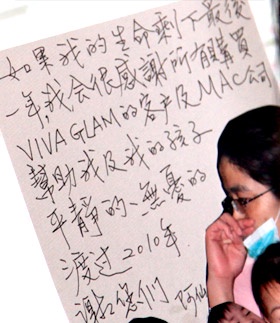 如果我的生命剩下最後
一年，我会很感謝所有購買
VIVA GLAM的客户及MAC公司
幫助我及我的孩子
平靜的、無憂的
渡过2010年.
謝謝您们 阿仙